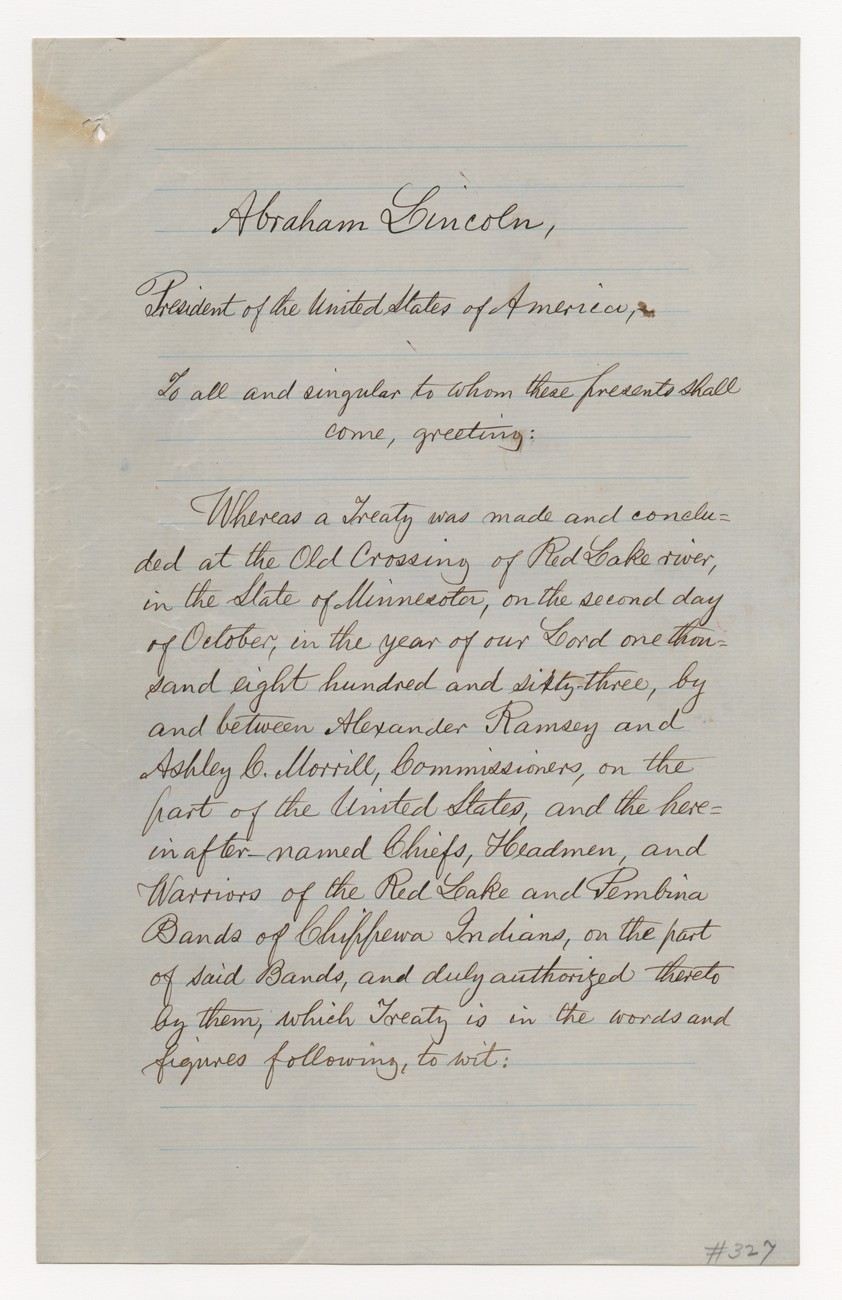 Abraham Lincoln,
President of the United States of America,
To all and singular to whom these presents shall
come, greeting:
Whereas a Treaty was made and conclu=
ded at the Old Crossing of Red Lake river,
in the State of Minnesota, on the second day
of October, in the year of our Lord one thou=
sand eight hundred and sixty-three, by
and between Alexander Ramsey and
Ashley C. Morrill, Commissioners, on the
part of the United States, and the here=
inafter-named Chiefs, Headmen, and
Warriors of the Red Lake and Pembina
Bands of Chippewa Indians, on the part
of said Bands, and duly authorized thereto
by them, which Treaty is in the words and
figures following, to wit:
#327